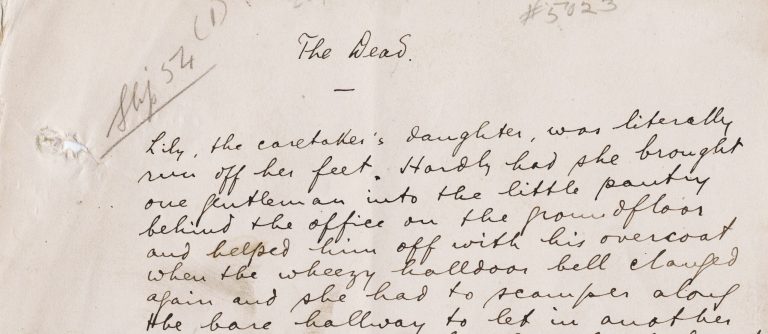 #5023
Slip 54 (1)
The Dead.
—
Lily, the caretaker's daughter, was literally
run off her feet. Hardly had she brought
one gentleman into the little pantry
behind the office on the groundfloor
and helped him off with his overcoat
when the wheezy halldoor bell clanged
again and she had to scamper along
the bare hallway to let in another